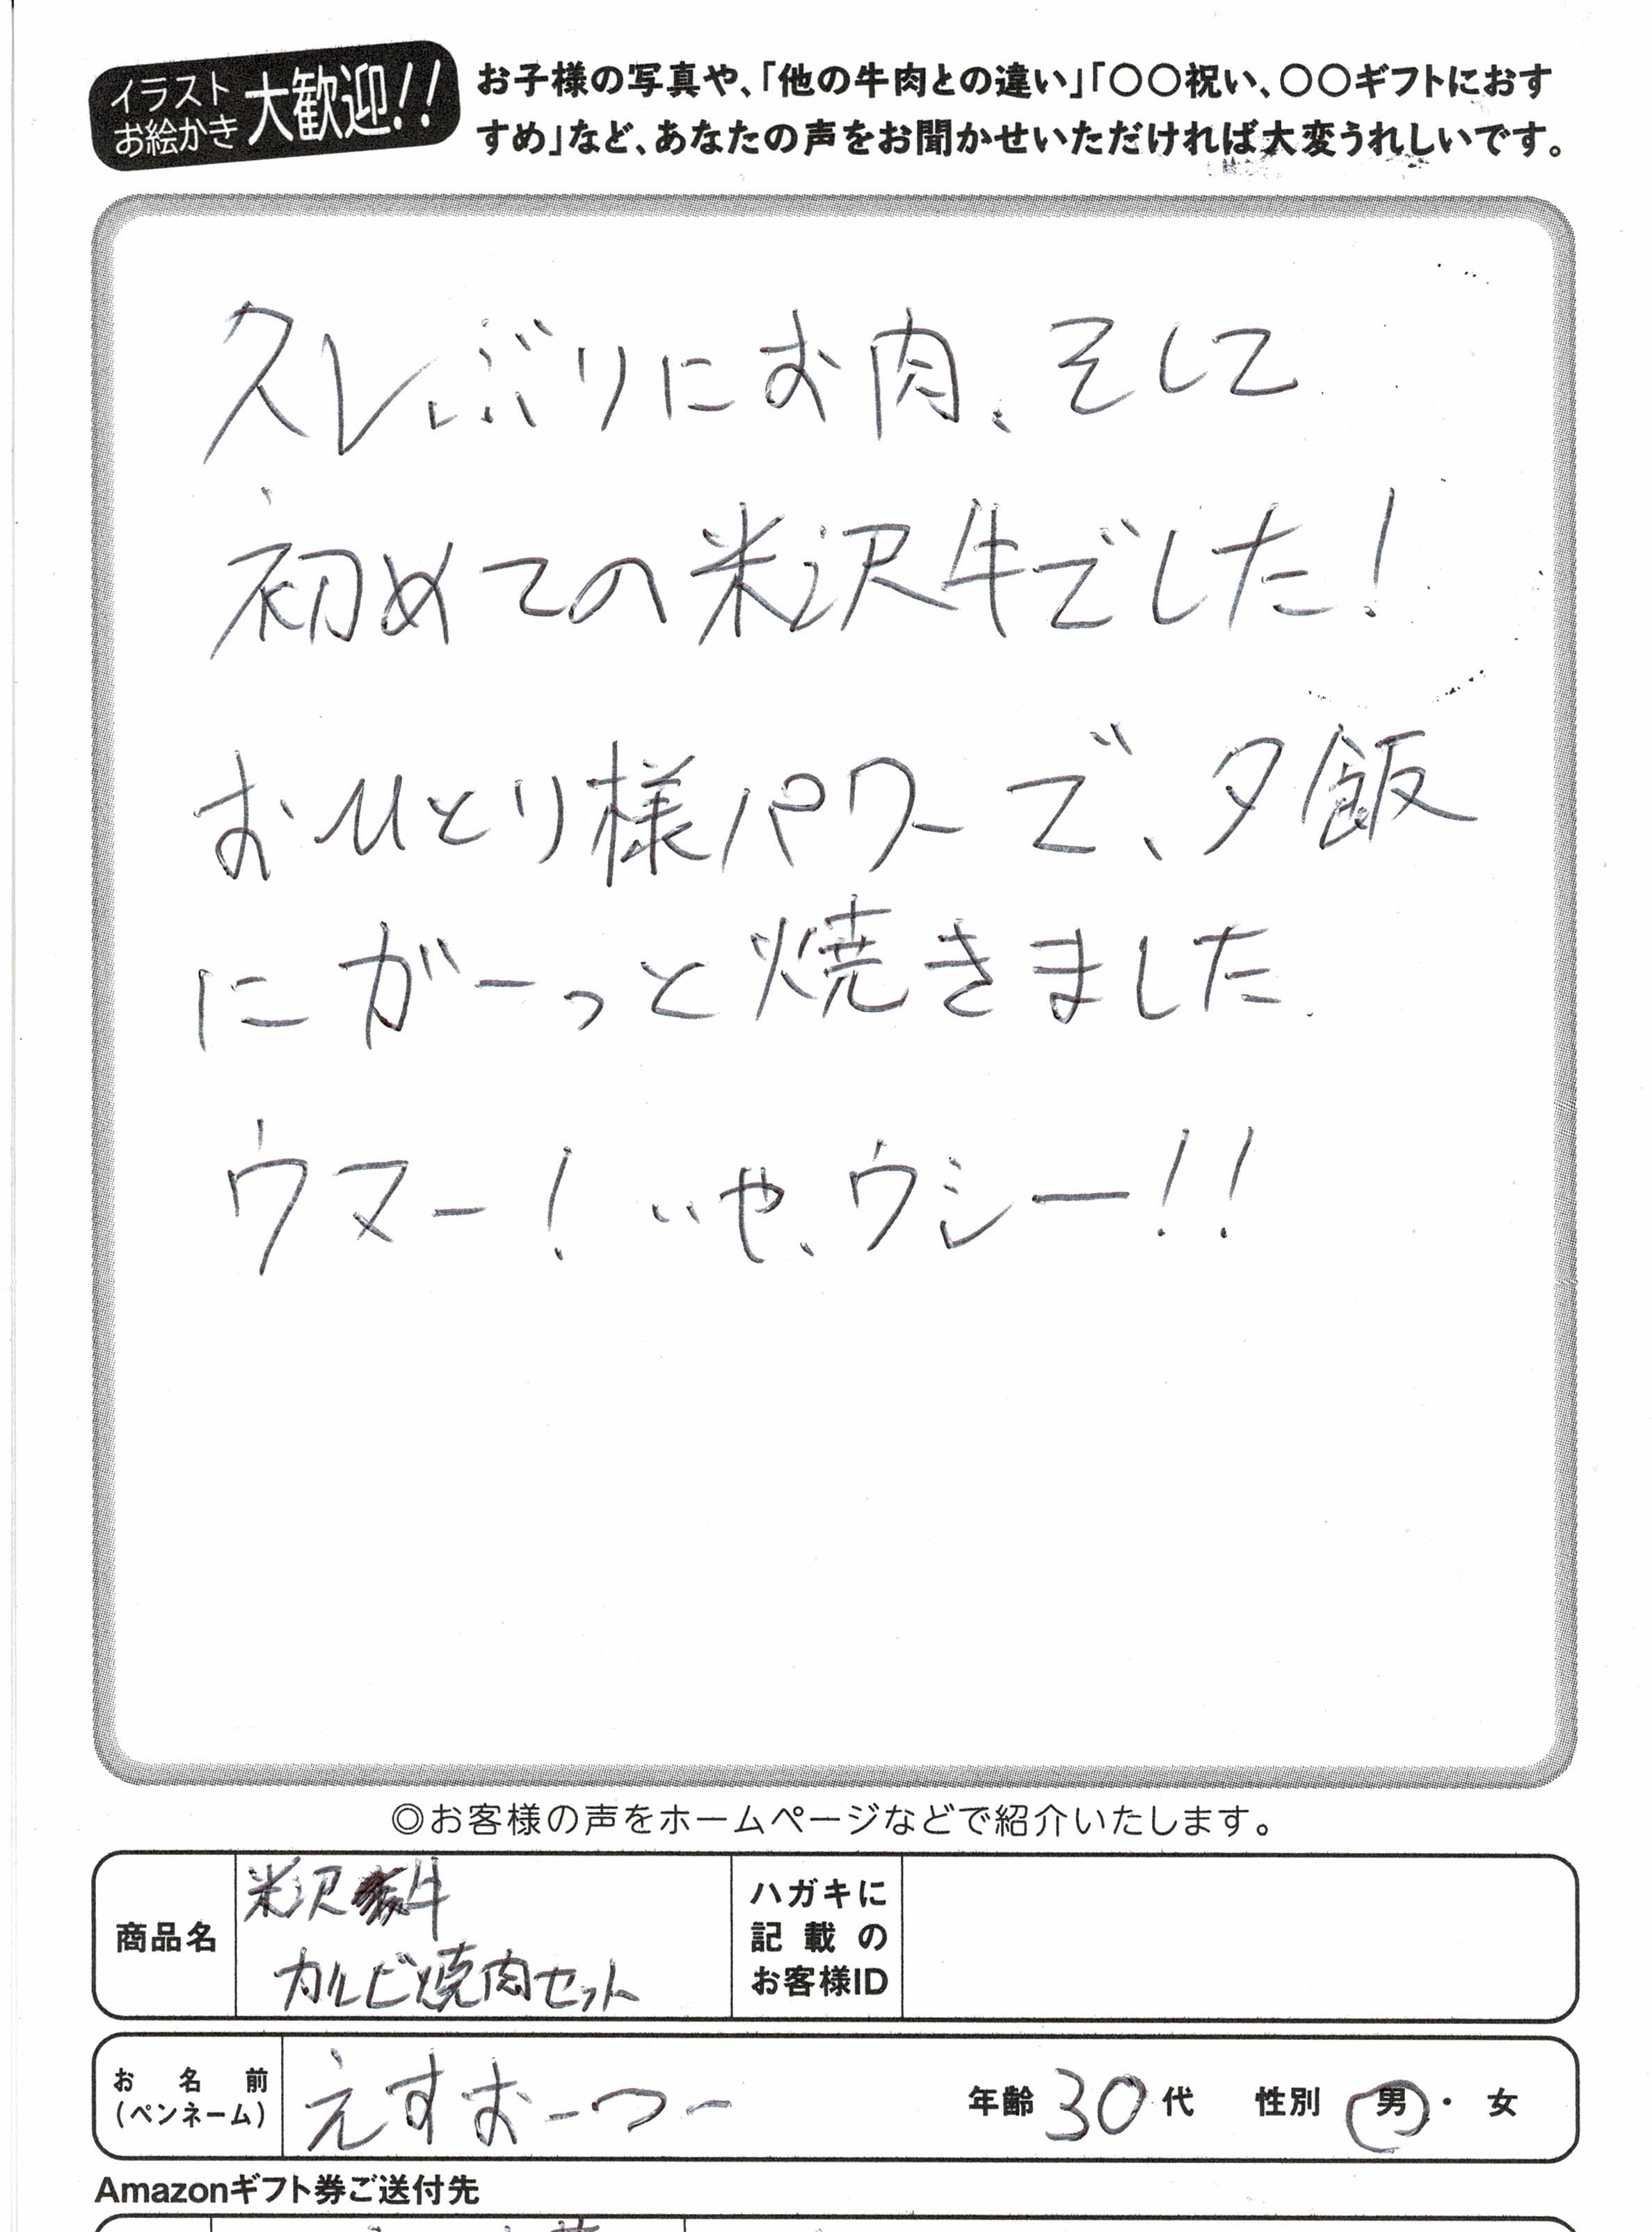 イラスト
お絵かき
大歓迎!!
お子様の写真や、「他の牛肉との違い」「〇〇祝い、〇〇ギフトにおす
すめ」など、あなたの声をお聞かせいただければ大変うれしいです。
久しぶりにお肉、そして
初めての米沢牛でした!
おひとり様パワーで、夕飯
にガーっと焼きました.
ウマー! いや、ウシー!!
◎お客様の声をホームページなどで紹介いたします。
商品名
米沢牛
カルビ焼肉セット
ハガキに
記載の
お客様ID
お名前
(ペンネーム)
えすおーつー
年齢 30 代 性別 男・女
Amazonギフト券ご送付先